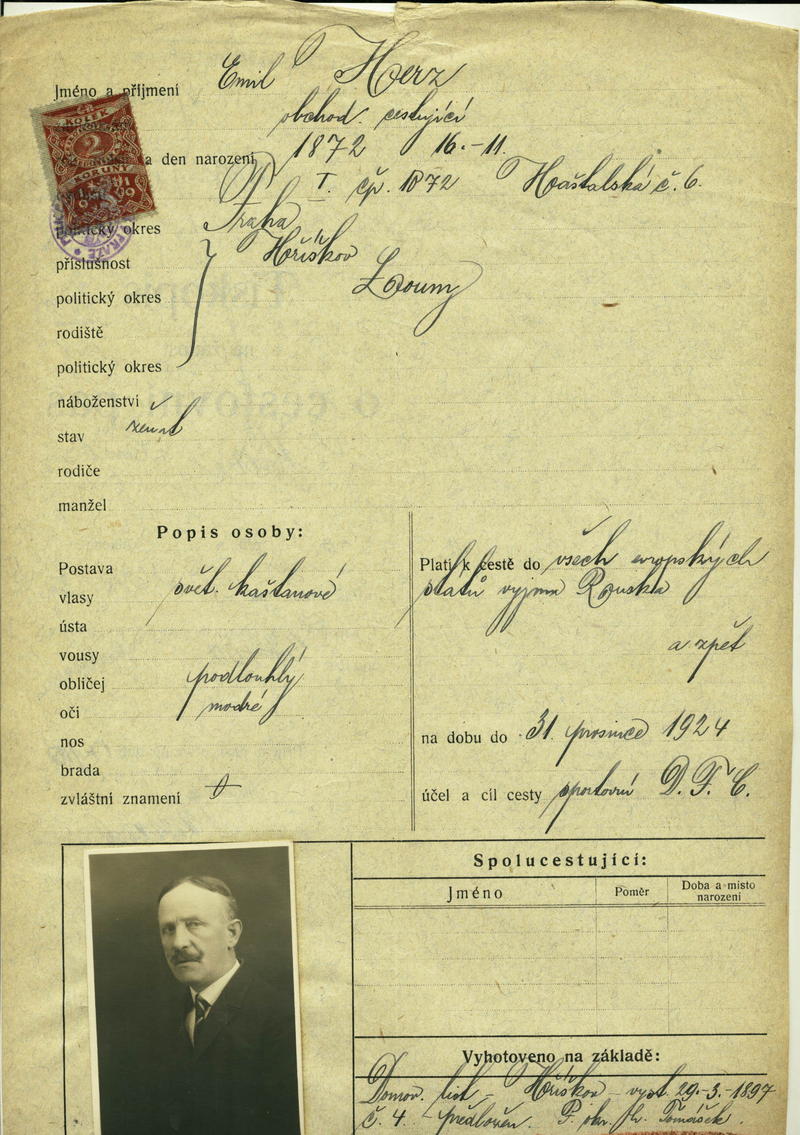 Jméno a příjmení Emil Herz
obchod. cestující
a den narození 1872 16.-11.
ČR
KOLEK
2
KORUNY
I. čp. 1872 Haštalská č. 6.
politický okres Praha
příslušnost Hříškov
politický okres Louny
rodiště
politický okres
náboženství
stav ženat
rodiče
manžel
Popis osoby:
Postava
vlasy svět. kaštanové
ústa
vousy
obličej podlouhlý
oči modré
nos
brada
zvláštní znamení
Platí k cestě do všech evropských
států vyjma Ruska
a zpět
na dobu do 31. prosince 1924
účel a cíl cesty sportovní D. F. C.
Spolucestující:
Jméno Poměr Doba a místo
narození
Vyhotoveno na základě:
Domov. list - Hříškov - vyst. 29.-3.-1897
č. 4 - předložen. P. okr. Tomášek.